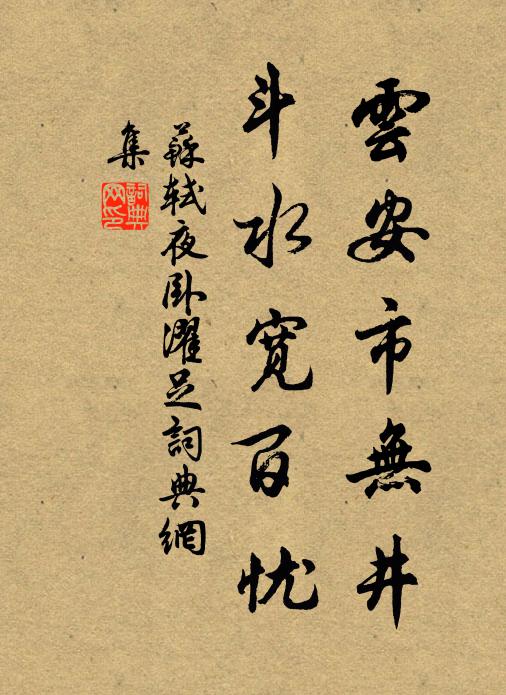 雲安市無井
斗水寬百忧
蘇軾夜卧濯足詞典網
集
詞典網印